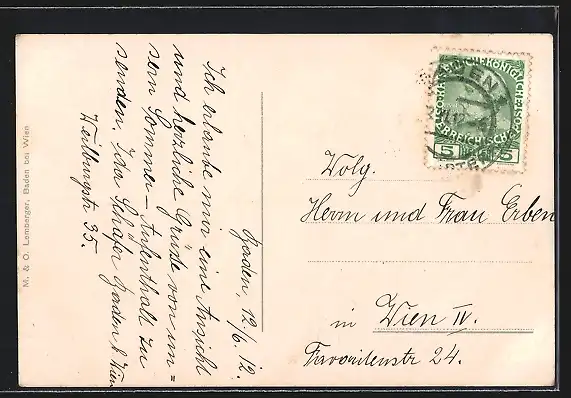 Baden, 12/6. 12.
Ich erlaube mir eine Ansicht
und herzliche Grüße von un=
serm Sommer-Aufenthalt zu
senden. Ida Schäfer Baden b. Wien
Weilburgstr 35.
Wolg.
Herrn und Frau Erben
in Wien IV.
Favoritenstr 24.
M. & O. Lemberger, Baden bei Wien
WIEN
5 5